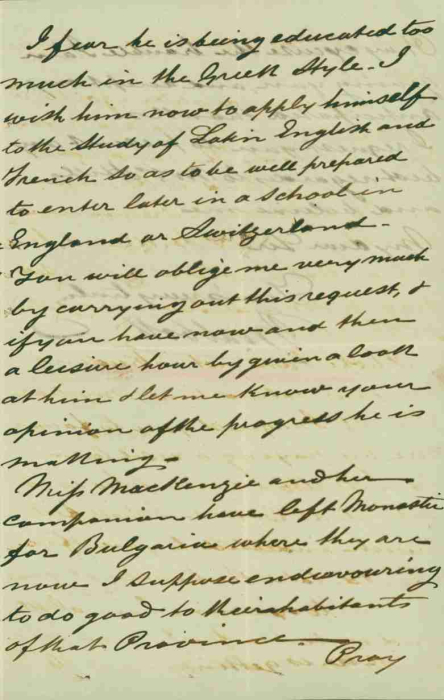 I fear he is being educated too
much in the Greek Style. I
wish him now to apply himself
to the Study of Latin English and
French So as to be well prepared
to enter later in a School in
England or Switzerland -
You will oblige me very much
by carrying out this request, &
if you have now and then
a leisure hour by given a look
at him & let me know your
opinion of the progress he is
making -
Miss MacKenzie and her
companion have left Monastir
for Bulgaria where they are
now I suppose endeavouring
to do good to the inhabitants
of that Province
Pray